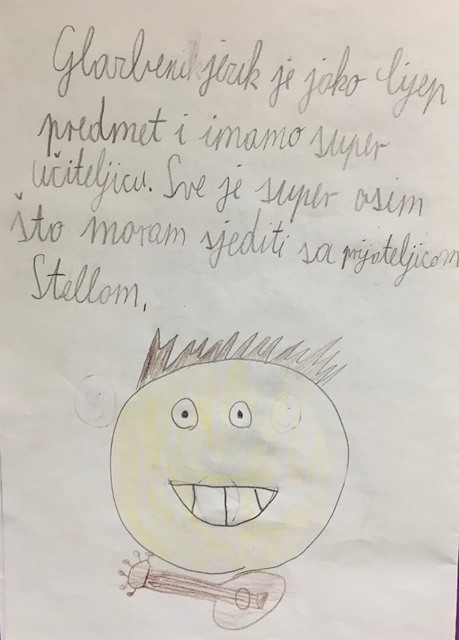 Glazbeni jezik je jako lijep
predmet i imamo super
učiteljicu. Sve je super osim
što moram sjediti sa prijateljicom
Stellom.